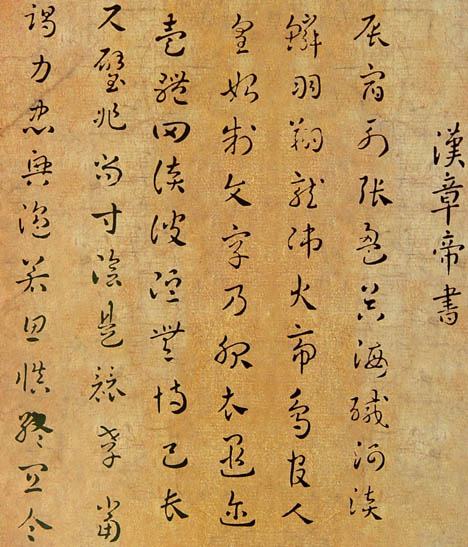 漢章帝書
辰宿列張盈昃海鹹河淡
鱗羽翔龍師火帝鳥官人
皇始制文字乃服衣遐迩
壹體罔談彼短靡恃己長
尺璧非寶寸陰是競孝當
竭力忠興溫若思慎終宜令